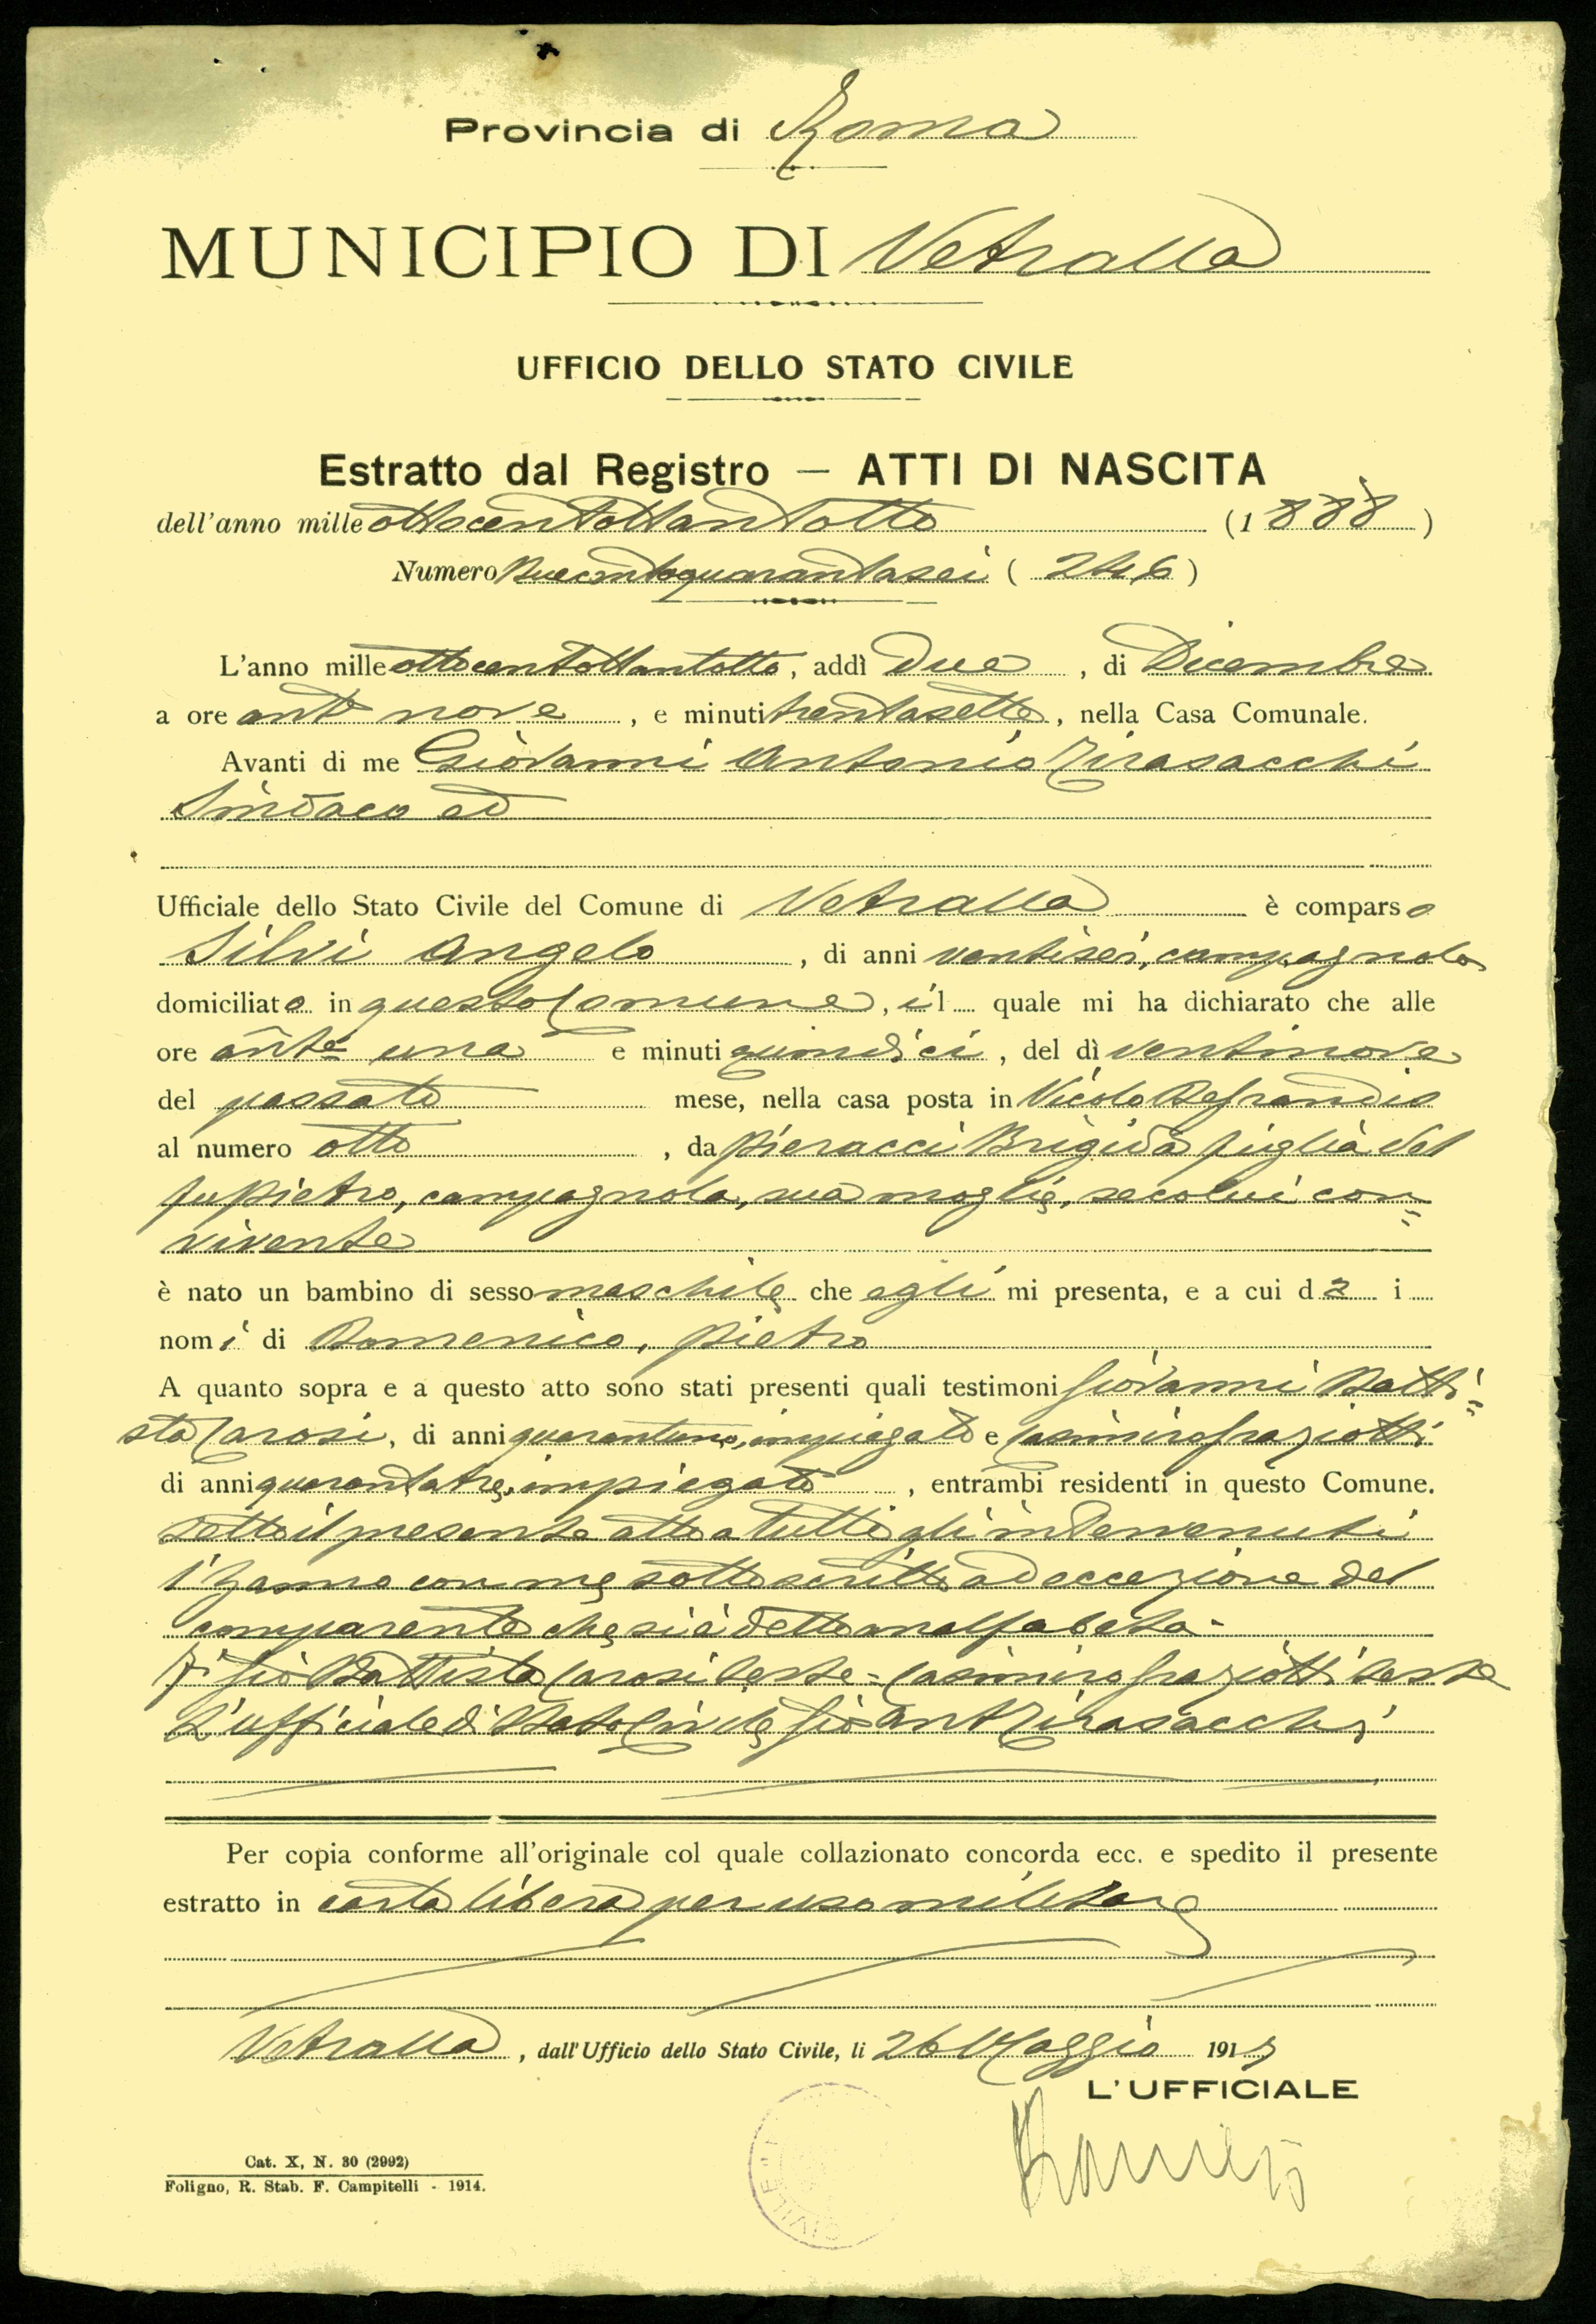 Provincia di Roma
MUNICIPIO DI Vetralla
UFFICIO DELLO STATO CIVILE
Estratto dal Registro — ATTI DI NASCITA
dell'anno mille ottocentottantotto (1888)
Numero Duecentoquarantasei (246)
L'anno mille ottocentottantotto, addì due, di Dicembre
a ore ante nove, e minuti trentasette, nella Casa Comunale.
Avanti di me Giovanni Antonio Zirasacchi
Sindaco ed
Ufficiale dello Stato Civile del Comune di Vetralla è comparso
Silvi Angelo, di anni ventisei, campagnolo
domiciliato in questo Comune, il quale mi ha dichiarato che alle
ore ante una e minuti quindici, del dì ventinove
del passato mese, nella casa posta in Vicolo
al numero otto, da Pieracci Brigida figlia del
fu Pietro, campagnola, sua moglie, secolui con=
vivente
è nato un bambino di sesso maschile che egli mi presenta, e a cui dà i
nomi di Domenico, Pietro
A quanto sopra e a questo atto sono stati presenti quali testimoni Giovanni Batti=
sta Carosi, di anni quarantuno, impiegato e Casimiro Graziotti
di anni quarantatre, impiegato, entrambi residenti in questo Comune.
Letto il presente atto a tutti gli intervenuti
l'hanno con me sottoscritto ad eccezione del
comparente che si è detto analfabeta -
Fi Gio Battista Carosi teste = Casimiro Graziotti teste
L'ufficiale di Stato Civile Gio Ant Zirasacchi
Per copia conforme all'originale col quale collazionato concorda ecc. e spedito il presente
estratto in carta libera per uso militare
Vetralla, dall'Ufficio dello Stato Civile, li 26 Maggio 191
L'UFFICIALE
CIVILE
Cat. X, N. 30 (2992)
Foligno, R. Stab. F. Campitelli - 1914.